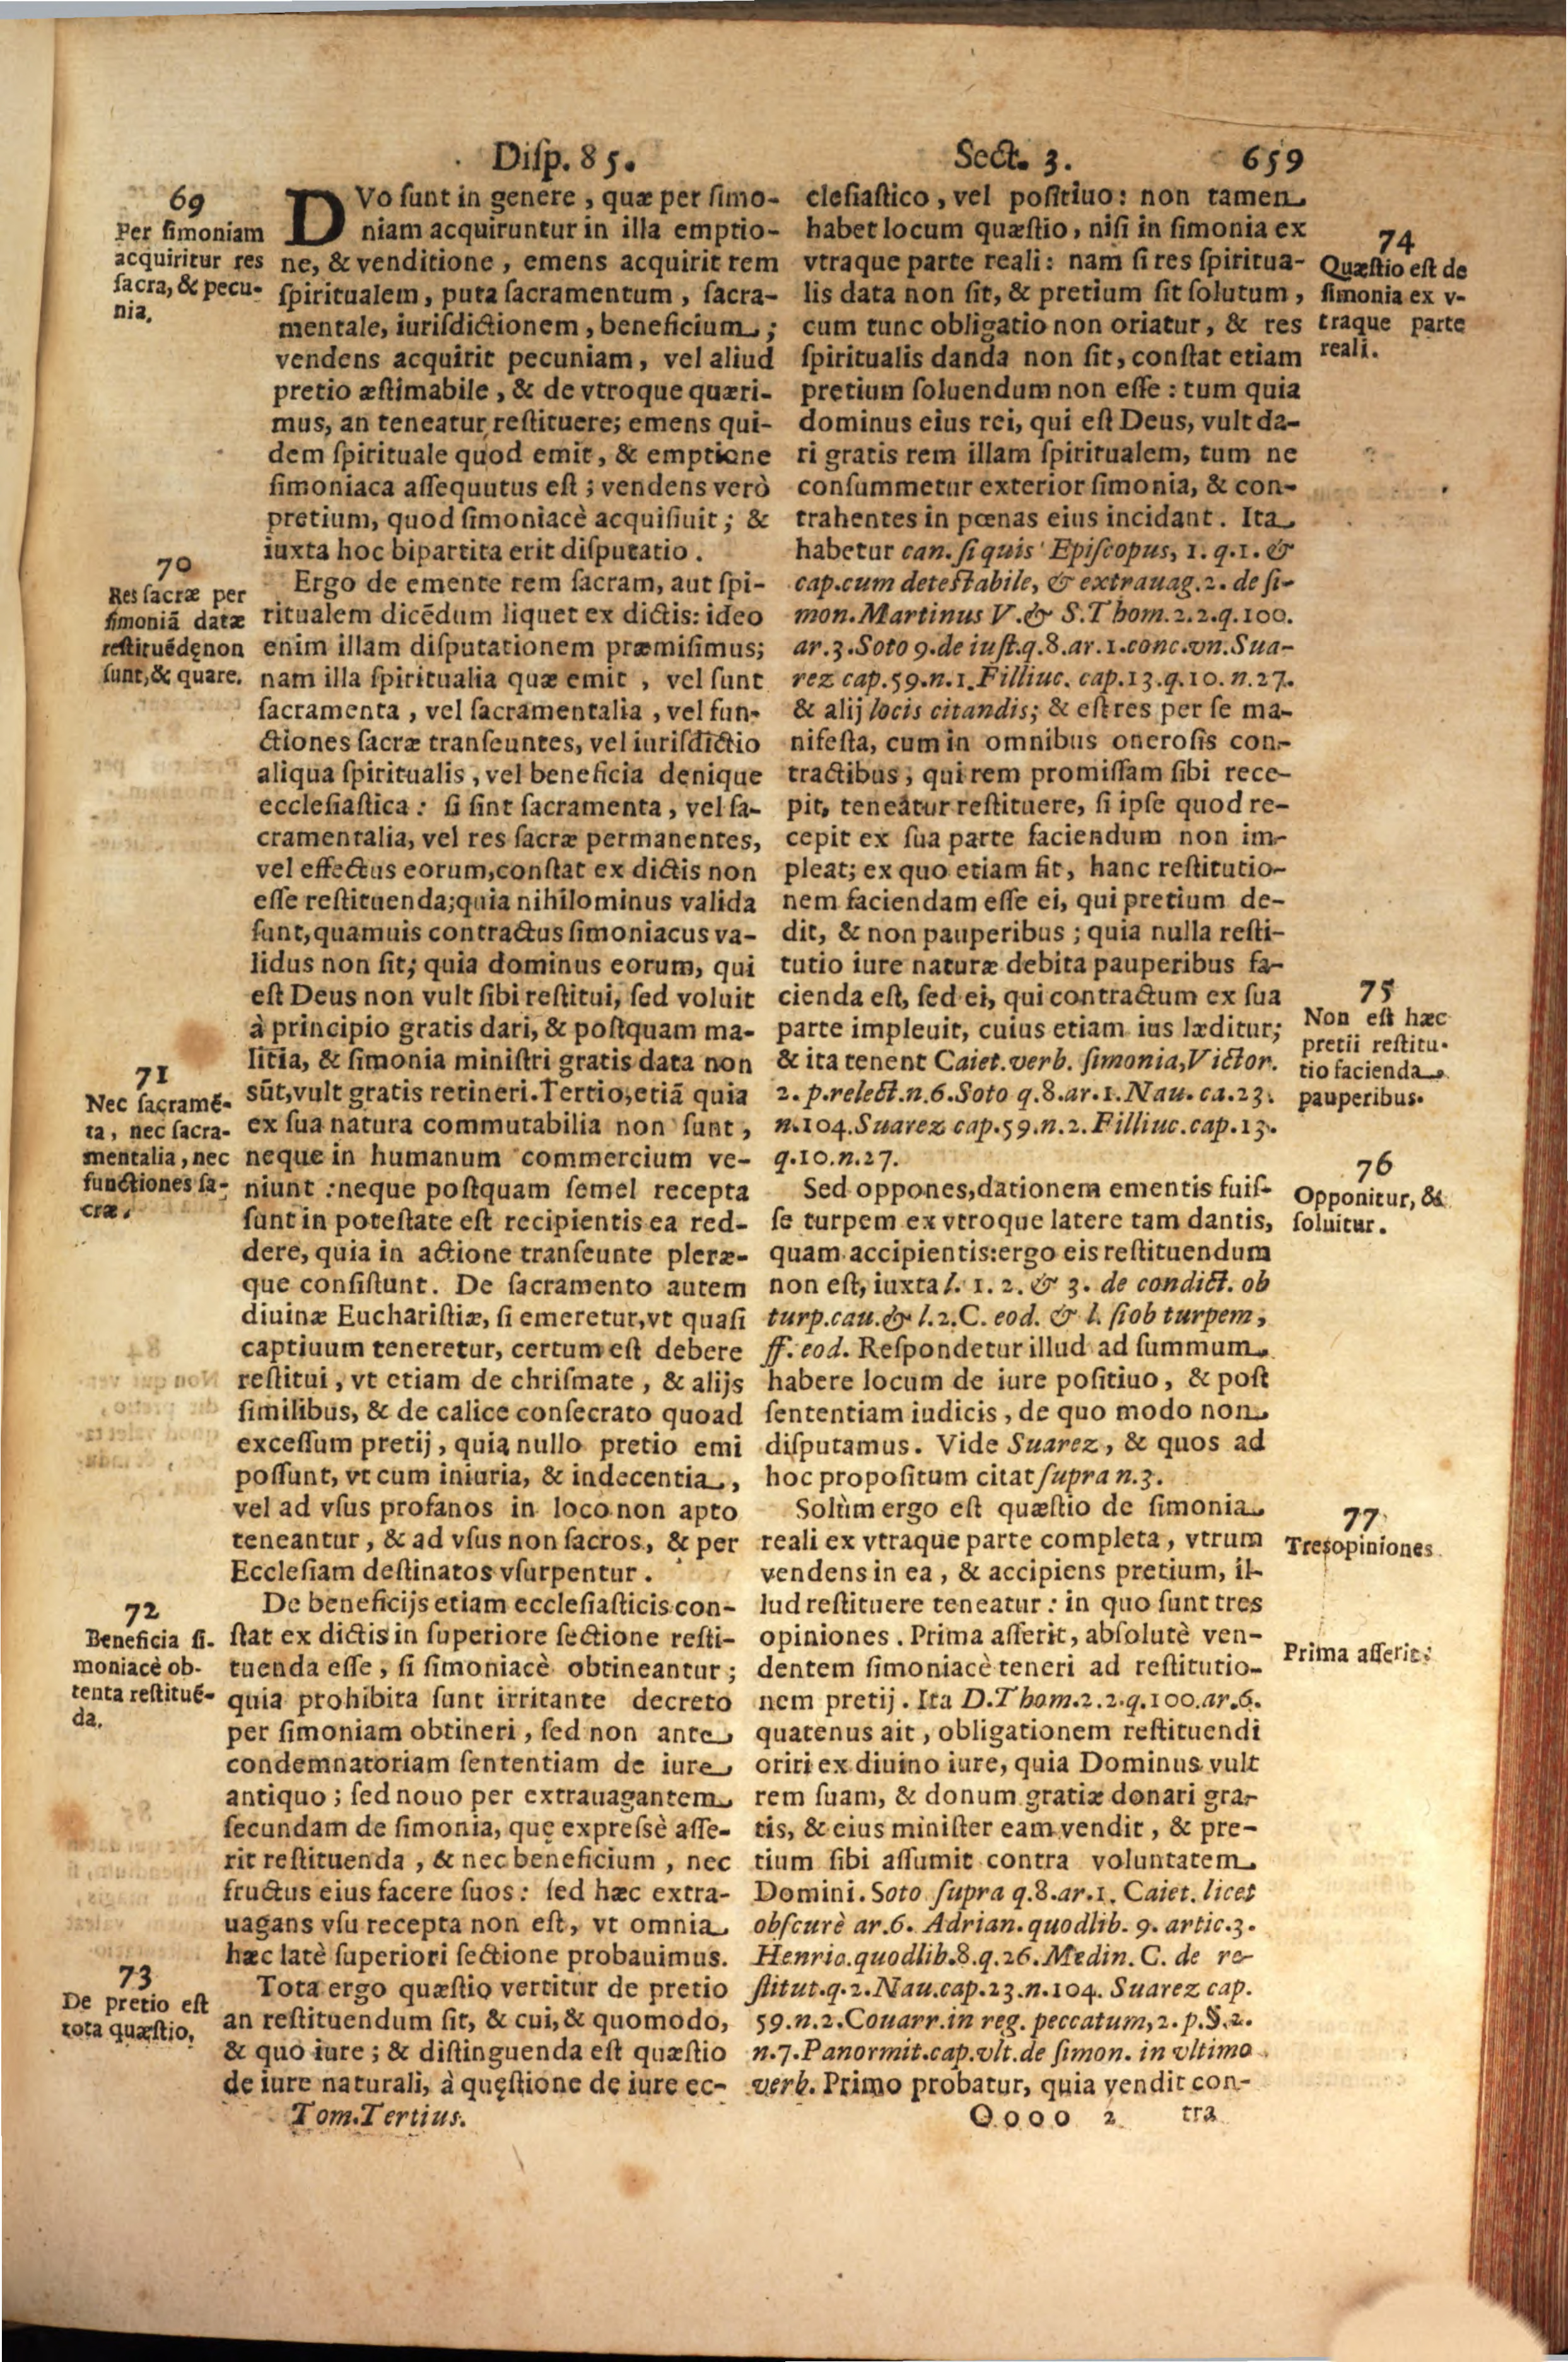 Disp. 85. Sect. 3. 659
69
Per simoniam
acquiritur res
sacra, & pecu-
nia.
DVo sunt in genere, quæ per simo-
niam acquiruntur in illa emptio-
ne, & venditione, emens acquirit rem
spiritualem, puta sacramentum, sacra-
mentale, iurisdictionem, beneficium;
vendens acquirit pecuniam, vel aliud
pretio æstimabile, & de vtroque quæri-
mus, an teneatur restituere; emens qui-
dem spirituale quod emit, & emptione
simoniaca assequutus est; vendens verò
pretium, quod simoniacè acquisiuit; &
iuxta hoc bipartita erit disputatio.
70
Res sacræ per
simoniã datæ
restituẽdę non
sunt, & quare.
Ergo de emente rem sacram, aut spi-
ritualem dicẽdum liquet ex dictis: ideo
enim illam disputationem præmisimus;
nam illa spiritualia quæ emit, vel sunt
sacramenta, vel sacramentalia, vel fun-
ctiones sacræ transeuntes, vel iurisdictio
aliqua spiritualis, vel beneficia denique
ecclesiastica: si sint sacramenta, vel sa-
cramentalia, vel res sacræ permanentes,
vel effectus eorum, constat ex dictis non
esse restituenda; quia nihilominus valida
sunt, quamuis contractus simoniacus va-
lidus non sit; quia dominus eorum, qui
est Deus non vult sibi restitui, sed voluit
à principio gratis dari, & postquam ma-
litia, & simonia ministri gratis data non
sũt, vult gratis retineri. Tertio, etiã quia
ex sua natura commutabilia non sunt,
neque in humanum commercium ve-
niunt: neque postquam semel recepta
sunt in potestate est recipientis ea red-
dere, quia in actione transeunte pleræ-
que consistunt. De sacramento autem
diuinæ Eucharistiæ, si emeretur, vt quasi
captiuum teneretur, certum est debere
restitui, vt etiam de chrismate, & alijs
similibus, & de calice consecrato quoad
excessum pretij, quia nullo pretio emi
possunt, vt cum iniuria, & indecentia,
vel ad vsus profanos in loco non apto
teneantur, & ad vsus non sacros, & per
Ecclesiam destinatos vsurpentur.
71
Nec sacramẽ-
ta, nec sacra-
mentalia, nec
functiones sa-
cræ.
72
Beneficia si-
moniacè ob-
tenta restituẽ-
da.
De beneficijs etiam ecclesiasticis con-
stat ex dictis in superiore sectione resti-
tuenda esse, si simoniacè obtineantur;
quia prohibita sunt irritante decreto
per simoniam obtineri, sed non ante
condemnatoriam sententiam de iure
antiquo; sed nouo per extrauagantem
secundam de simonia, quę expressè asse-
rit restituenda, & nec beneficium, nec
fructus eius facere suos: sed hæc extra-
uagans vsu recepta non est, vt omnia
hæc latè superiori sectione probauimus.
73
De pretio est
tota quæstio.
Tota ergo quæstio vertitur de pretio
an restituendum sit, & cui, & quomodo,
& quo iure; & distinguenda est quæstio
de iure naturali, à quęstione de iure ec-
Tom. Tertius.
clesiastico, vel positiuo: non tamen
habet locum quæstio, nisi in simonia ex
vtraque parte reali: nam si res spiritua-
lis data non sit, & pretium sit solutum,
cum tunc obligatio non oriatur, & res
spiritualis danda non sit, constat etiam
pretium soluendum non esse: tum quia
dominus eius rei, qui est Deus, vult da-
ri gratis rem illam spiritualem, tum ne
consummetur exterior simonia, & con-
trahentes in pœnas eius incidant. Ita
habetur can. si quis Episcopus, 1. q.1. &
cap. cum detestabile, & extrauag. 2. de si-
mon. Martinus V. & S. Thom. 2.2. q. 100.
ar. 3. Soto 9. de iust. q.8. ar. 1. conc. vn. Sua-
rez cap. 59. n. 1. Filliuc. cap. 13. q. 10. n. 27.
& alij locis citandis; & est res per se ma-
nifesta, cum in omnibus onerosis con-
tractibus, qui rem promissam sibi rece-
pit, teneatur restituere, si ipse quod re-
cepit ex sua parte faciendum non im-
pleat; ex quo etiam fit, hanc restitutio-
nem faciendam esse ei, qui pretium de-
dit, & non pauperibus; quia nulla resti-
tutio iure naturæ debita pauperibus fa-
cienda est, sed ei, qui contractum ex sua
parte impleuit, cuius etiam ius læditur;
& ita tenent Caiet. verb. simonia, Victor.
2. p. relect. n. 6. Soto q. 8. ar. 1. Nau. ca. 23.
n. 104. Suarez cap. 59. n. 2. Filliuc. cap. 13.
q. 10. n. 27.
74
Quæstio est de
simonia ex v-
traque parte
reali.
75
Non est hæc
pretii restitu-
tio facienda
pauperibus.
76
Opponitur, &
soluitur.
Sed oppones, dationem ementis fuis-
se turpem ex vtroque latere tam dantis,
quam accipientis: ergo eis restituendum
non est, iuxta l. 1. 2. & 3. de condict. ob
turp. cau. & l. 2. C. eod. & l. si ob turpem,
ff. eod. Respondetur illud ad summum
habere locum de iure positiuo, & post
sententiam iudicis, de quo modo non
disputamus. Vide Suarez, & quos ad
hoc propositum citat supra n. 3.
77
Tres opiniones
Solùm ergo est quæstio de simonia
reali ex vtraque parte completa, vtrum
vendens in ea, & accipiens pretium, il-
lud restituere teneatur: in quo sunt tres
opiniones. Prima asserit, absolutè ven-
dentem simoniacè teneri ad restitutio-
nem pretij. Ita D. Thom. 2. 2. q. 100. ar. 6.
quatenus ait, obligationem restituendi
oriri ex diuino iure, quia Dominus vult
rem suam, & donum gratiæ donari gra-
tis, & eius minister eam vendit, & pre-
tium sibi assumit contra voluntatem
Domini. Soto supra q. 8. ar. 1. Caiet. licet
obscurè ar. 6. Adrian. quodlib. 9. artic. 3.
Henric. quodlib. 8. q. 26. Medin. C. de re-
stitut. q. 2. Nau. cap. 23. n. 104. Suarez cap.
59. n. 2. Couarr. in reg. peccatum, 2. p. §. 2.
n. 7. Panormit. cap. vlt. de simon. in vltimo
verb. Primo probatur, quia vendit con-
Prima asserit.
Qooo 2 tra